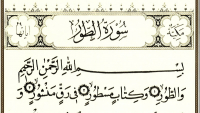 مكية سورة الطور آياتها
بسم الله الرحمن الرحيم
والطور وكتاب مسطور في رق منشور و